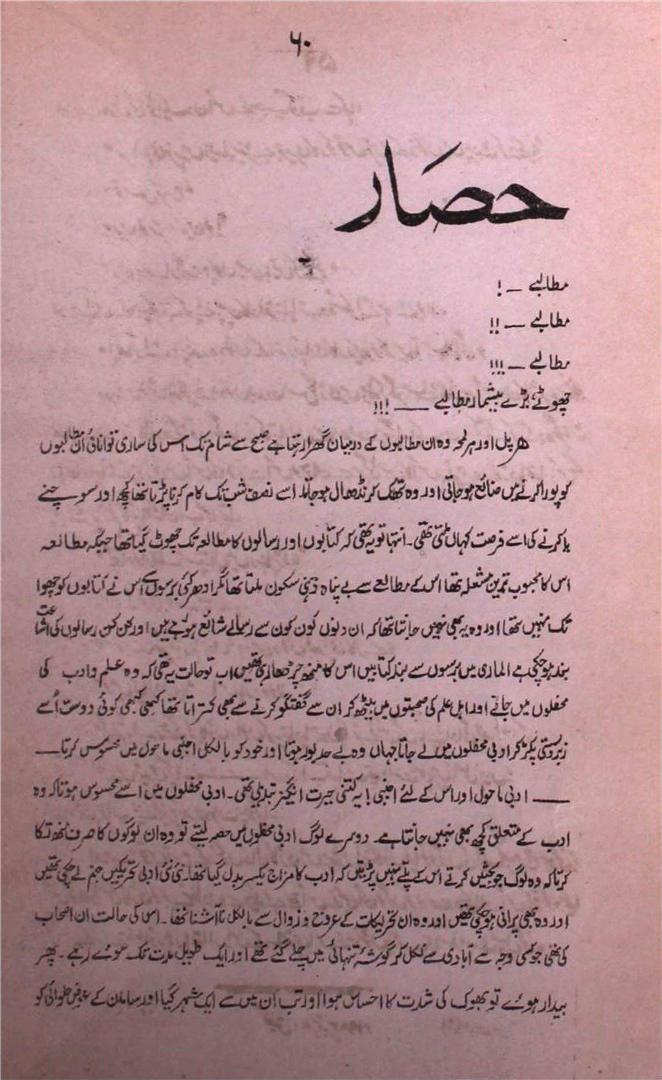 ۶۰
حصَار
مطالبے ــ !
مطالبے ــ !!
مطالبے ــ !!!
چھوٹے بڑے بیشمار مطالبے ـــــ !!!
ہر پل اور ہر لمحہ وہ ان مطالبوں کے درمیان گھرا رہتا ہے صبح سے شام تک اس کی ساری توانائی اُن مطالبوں
کو پورا کرنے میں ضائع ہو جاتی اور وہ تھک کر نڈھال ہو جاتا۔ اسے نصف شب تک کام کرنا پڑتا تھا کچھ اور سوچنے
یا کرنے کی اسے فرصت کہاں ملتی تھی۔ انتہا تو یہ تھی کہ کتابوں اور رسالوں کا مطالعہ تک چھوٹ گیا تھا جبکہ مطالعہ
اس کا محبوب ترین مشغلہ تھا اس کے مطالعے سے بے پناہ ذہنی سکون ملتا تھا مگر ادھر کئی برسوں سے اس نے کتابوں کو چھوا
تک نہیں تھا اور وہ یہ بھی نہیں جانتا تھا کہ ان دنوں کون کون سے رسالے شائع ہو رہے ہیں اور کن کن رسالوں کی اشاعت
بند ہو چکی ہے الماری میں برسوں سے بند کتابیں اس کا منھ چڑھا رہی تھیں اب تو حالت یہ تھی کہ وہ علم و ادب کی
محفلوں میں جانے اور اہل علم کی صحبتوں میں بیٹھ کر ان سے گفتگو کرنے سے بھی کتراتا تھا کبھی کبھی کوئی دوست اُسے
زبردستی پکڑ کر ادبی محفلوں میں لے جاتا جہاں وہ بے حد بور ہوتا اور خود کو بالکل اجنبی ماحول میں محسوس کرتا ــــ
ــــ ادبی ماحول اور اس کے لئے اجنبی ! یہ کتنی حیرت انگیز تبدیلی تھی۔ ادبی محفلوں میں اسے محسوس ہوتا کہ وہ
ادب کے متعلق کچھ بھی نہیں جانتا ہے۔ دوسرے لوگ ادبی محفلوں میں حصہ لیتے تو وہ ان لوگوں کا صرف منھ تکا
کرتا کہ وہ لوگ جو بحثیں کرتے اس کے پلے نہیں پڑتیں کہ ادب کا مزاج یکسر بدل گیا تھا۔ نئی نئی ادبی تحریکیں جنم لے چکی تھیں
اور وہ بھی پرانی ہو چکی تھیں اور وہ ان تحریکات کے عروج و زوال سے بالکل نا آشنا تھا۔ اس کی حالت ان اصحاب
کی تھی جو کسی وجہ سے آبادی سے نکل کر گوشۂ تنہائی میں چلے گئے تھے اور ایک طویل مدت تک سوئے رہے۔ پھر
بیدار ہوئے تو بھوک کی شدت کا احساس ہوا اور تب ان میں سے ایک شہر گیا اور سامان کے عوض حلوائی کو